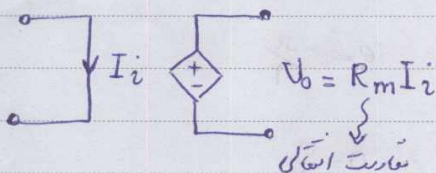 I_i
+
-
V_o = R_m I_i
مقاومت انتقالی